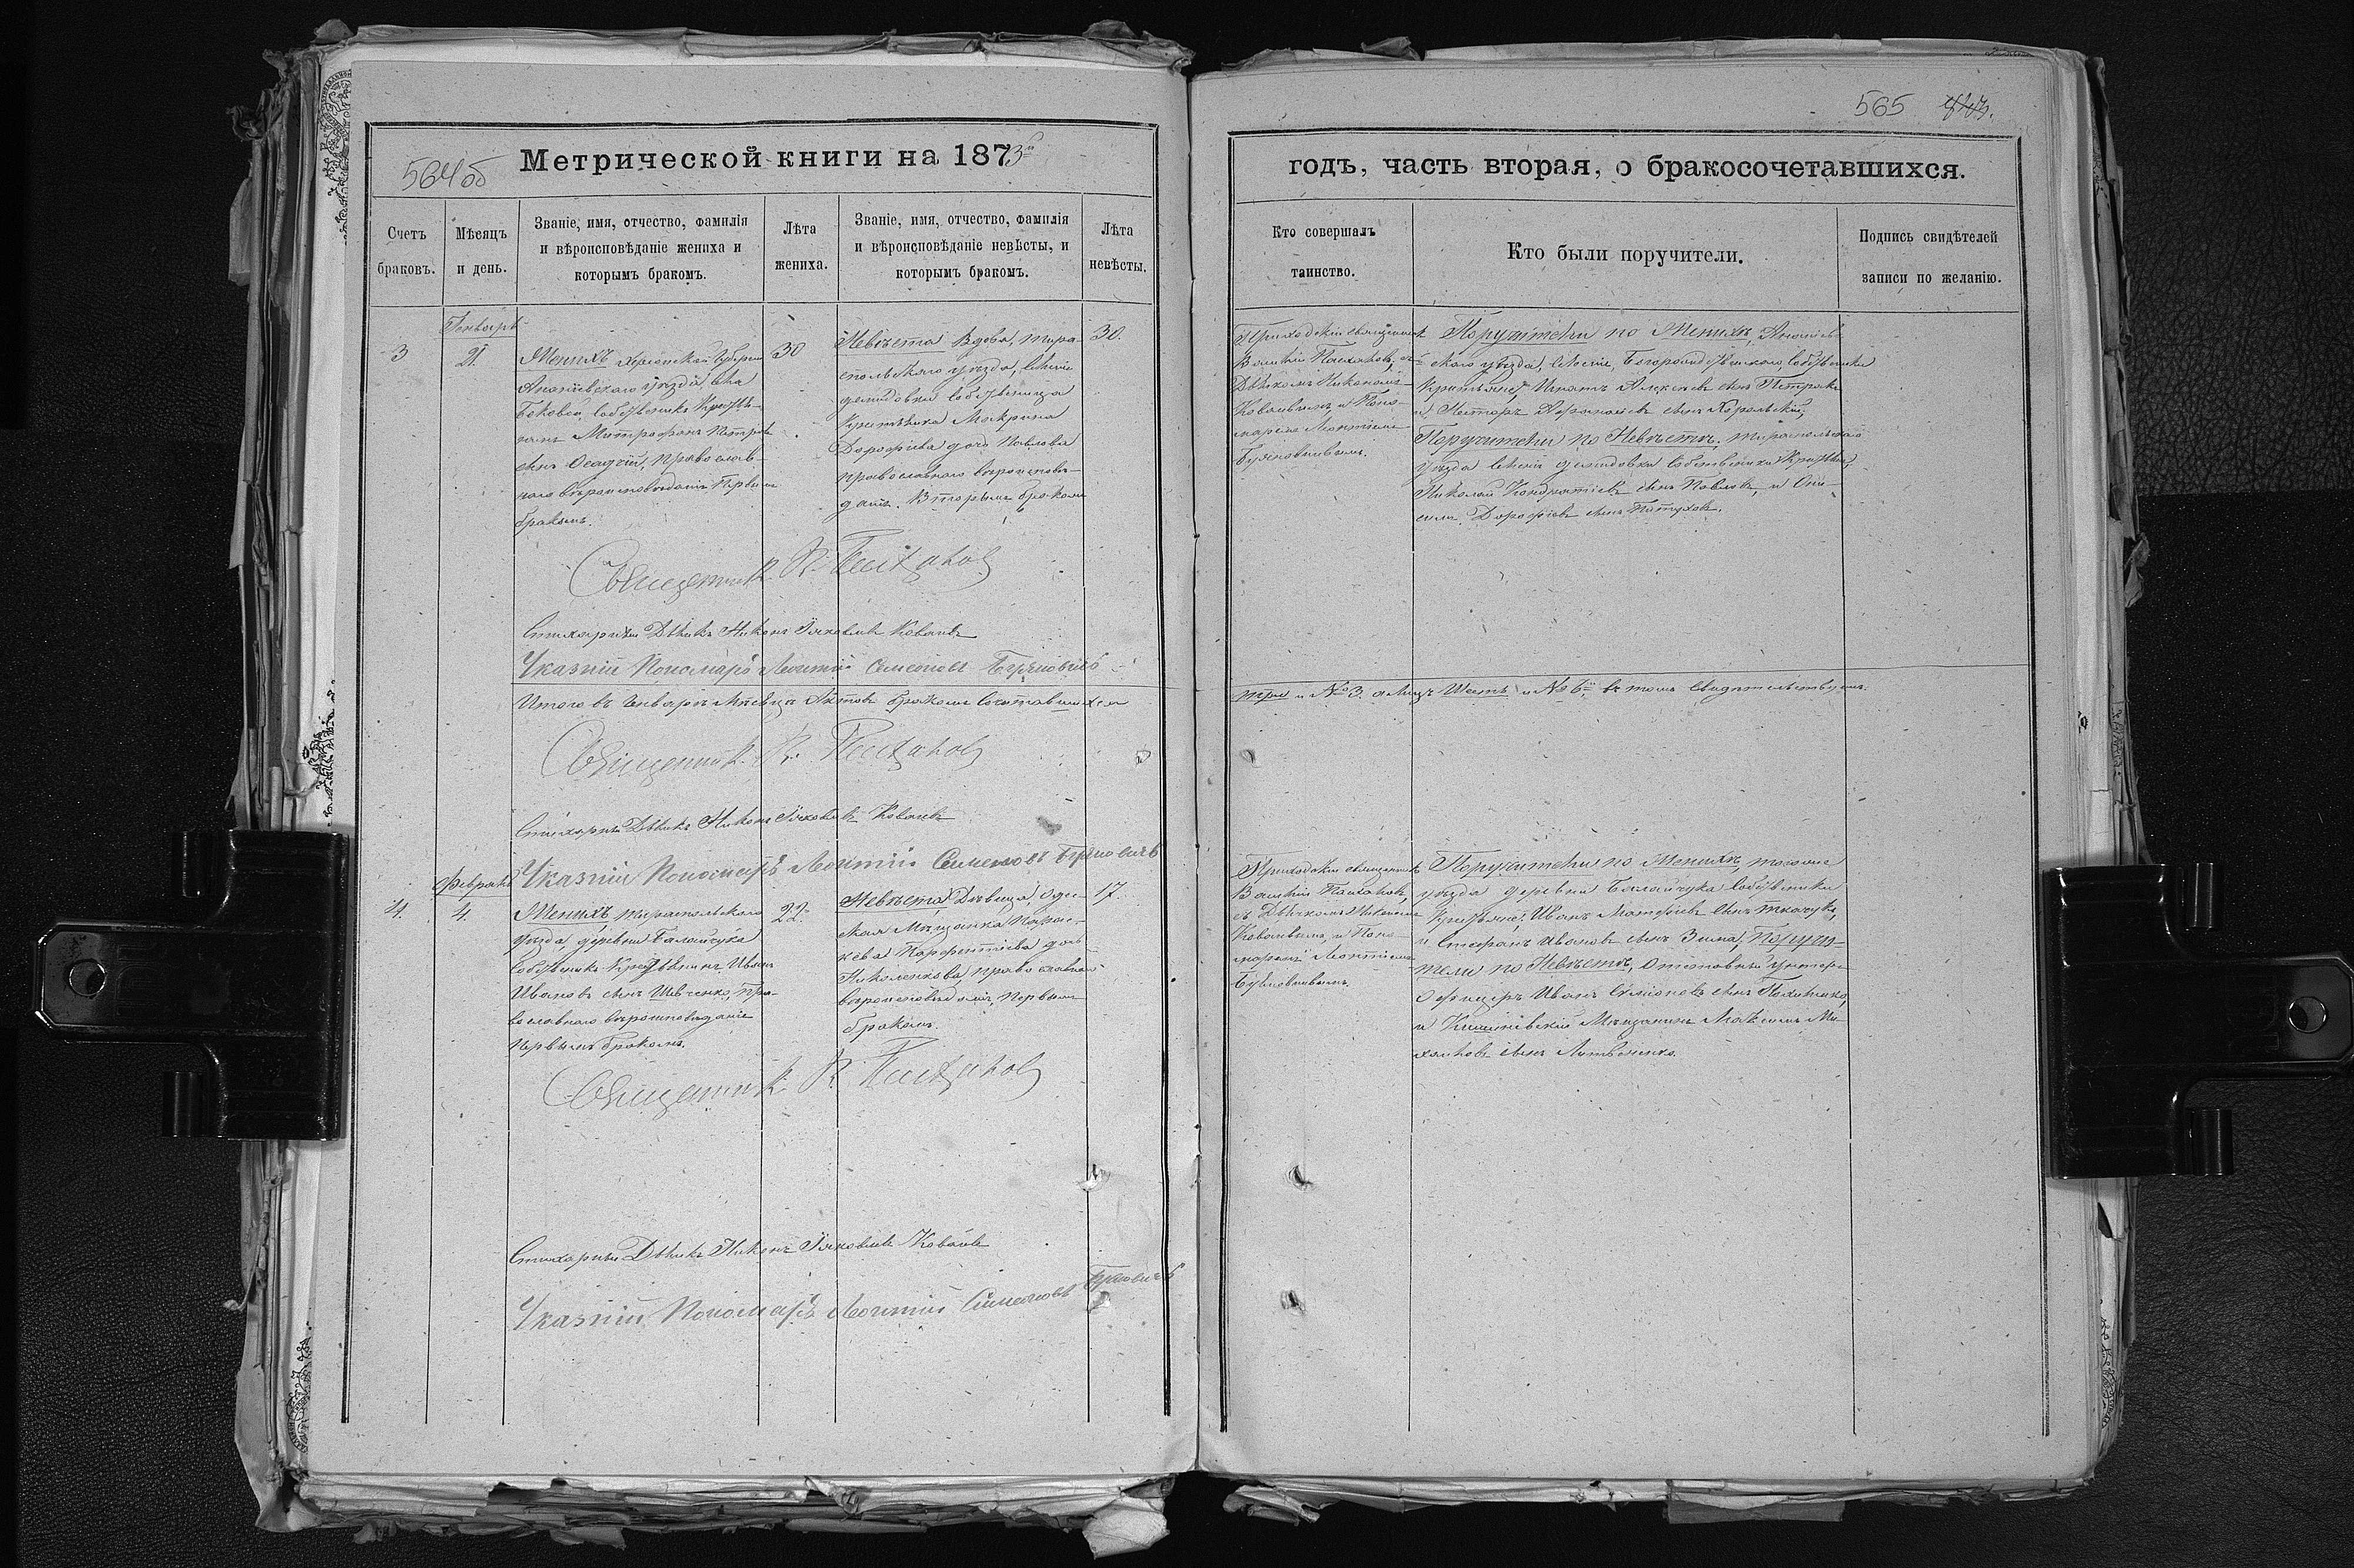 564об
Метрической книги на 1873й
Счетъ браковъ.
Мѣсяцъ и день.
Званіе, имя, отчество, фамилія
и вѣроисповѣданіе жениха и
которымъ бракомъ.
Лѣта жениха.
Званіе, имя, отчество, фамилія
и вѣроисповѣданіе невѣсты, и
которымъ бракомъ.
Лѣта невѣсты.
3
Генварь
21.
Женихъ Херсонской Губерніи
Ананіевскаго уѣзда, села
собственникъ Крестья-
нинъ Митрофанъ Петровъ
сынъ Осадчій, православ-
наго вѣроисповѣданія Первымъ
бракомъ.
30
Невѣста Вдова, тира-
спольскаго уѣзда, селенія
демидовки собственица
Крестьянка Макрина
Дорофіева дочь Павлова
православнаго вѣроисповѣ-
данія. Вторымъ бракомъ
30.
Священникъ В. Палхановъ
Стихарный Дьячекъ Никонъ Іяковлевъ Ковалевъ
Указній Пономаръ Леонтій Семеоновъ
Итого въ Генваръ мѣсяцъ Актовъ бракомъ сочетавшихся
Священникъ В. Палхановъ
Стихарный Дьячекъ Никонъ Іяковлевъ Ковалевъ
Указній Пономаръ Леонтій Симеоновъ
4.
Февраль
4.
Женихъ тираспольскаго
уѣзда деревни Балайчука
собственикъ Крестьянинъ Иванъ
Ивановъ сынъ Шевченко, пра-
вославнаго вѣроисповѣданіе
первымъ бракомъ.
22.
Невѣста Дѣвица, Одес-
ская Мѣщанка Парас-
кева Парфентіева дочь
Николенкова, православнаго
вѣроисповѣданія, первымъ
бракомъ.
17.
Священникъ В. Палхановъ
Стихарный Дьячекъ Никонъ Іяковлевъ Ковалевъ
Указній Пономаръ Леонтій Симеоновъ
565
годъ, часть вторая, о бракосочетавшихся.
Кто совершалъ
таинство.
Кто были поручители.
Подпись свидѣтелей
записи по желанію.
Приходскій священникъ
Василій Палхановъ, съ
Дьячкомъ Никономъ
Ковалевымъ, и Поно-
маремъ Леонтіемъ
Поручители по Женихѣ, Ананіев-
скаго уѣзда, селенія, собственики
Крестьяне, Игнатъ Алексѣевъ сынъ Петряко
и Несторъ Афанасіевъ сынъ Корольскій,
Поручители по Невѣстѣ, тираспольскаго
уѣзда селенія демидовки собственики Крестьяне,
Николай Кондратіевъ сынъ Павловъ, и Они-
симъ Дорофіевъ сынъ Петуховъ.
три и № 3. а лицъ Шесть и № 6й въ томъ свидѣтельствуемъ.
Приходскій священникъ
Василій Палхановъ,
съ Дьячкомъ Никономъ
Ковалевымъ, и Поно-
маремъ Леонтіемъ
Поручители по Женихѣ, тогоже
уѣзда деревни Балайчука собственики
Крестьяне, Иванъ Матфіевъ сынъ ткачукъ,
и Стефанъ Ивановъ сынъ Зима, Поручи-
тели по Невѣстѣ, Отставный унтеръ-
офицеръ Иванъ Симіоновъ сынъ
и Кишиневскій Мѣщанинъ Максимъ Ми-
хайловъ сынъ Литвиненко.